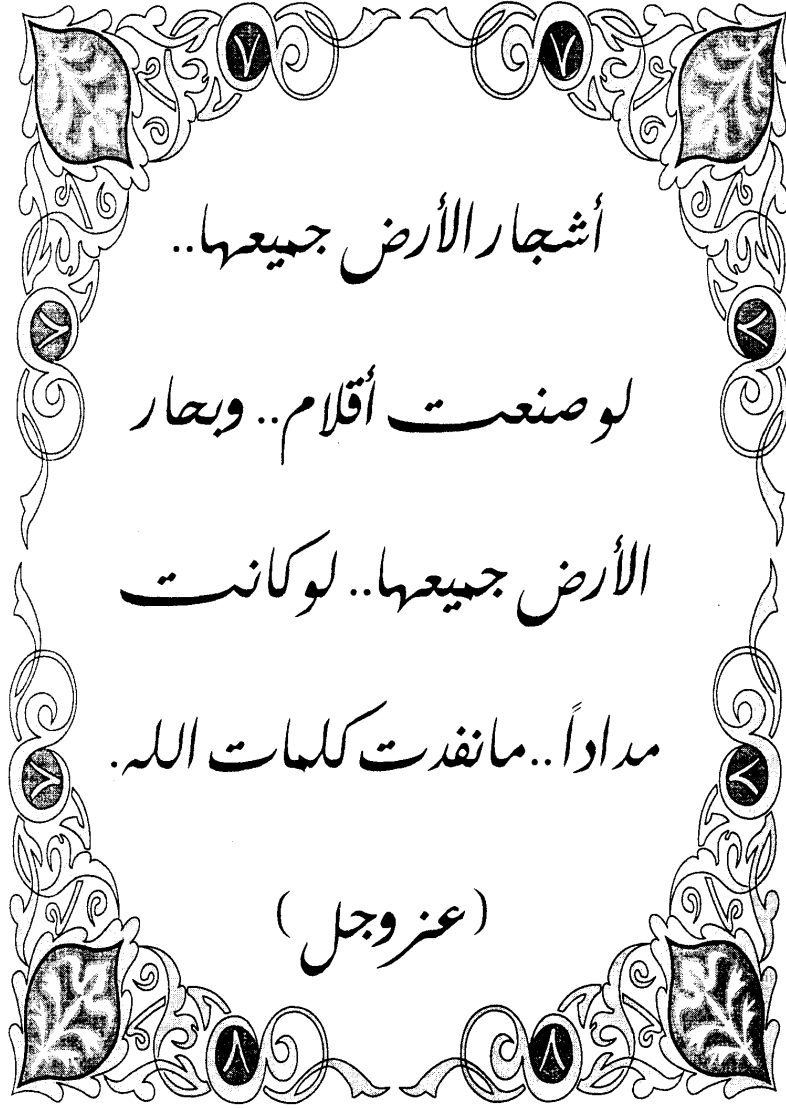 أشجار الأرض جميعها..
لو صنعت أقلام.. وبحار
الأرض جميعها.. لو كانت
مداداً.. ما نفدت كلمات الله.
(عز وجل)